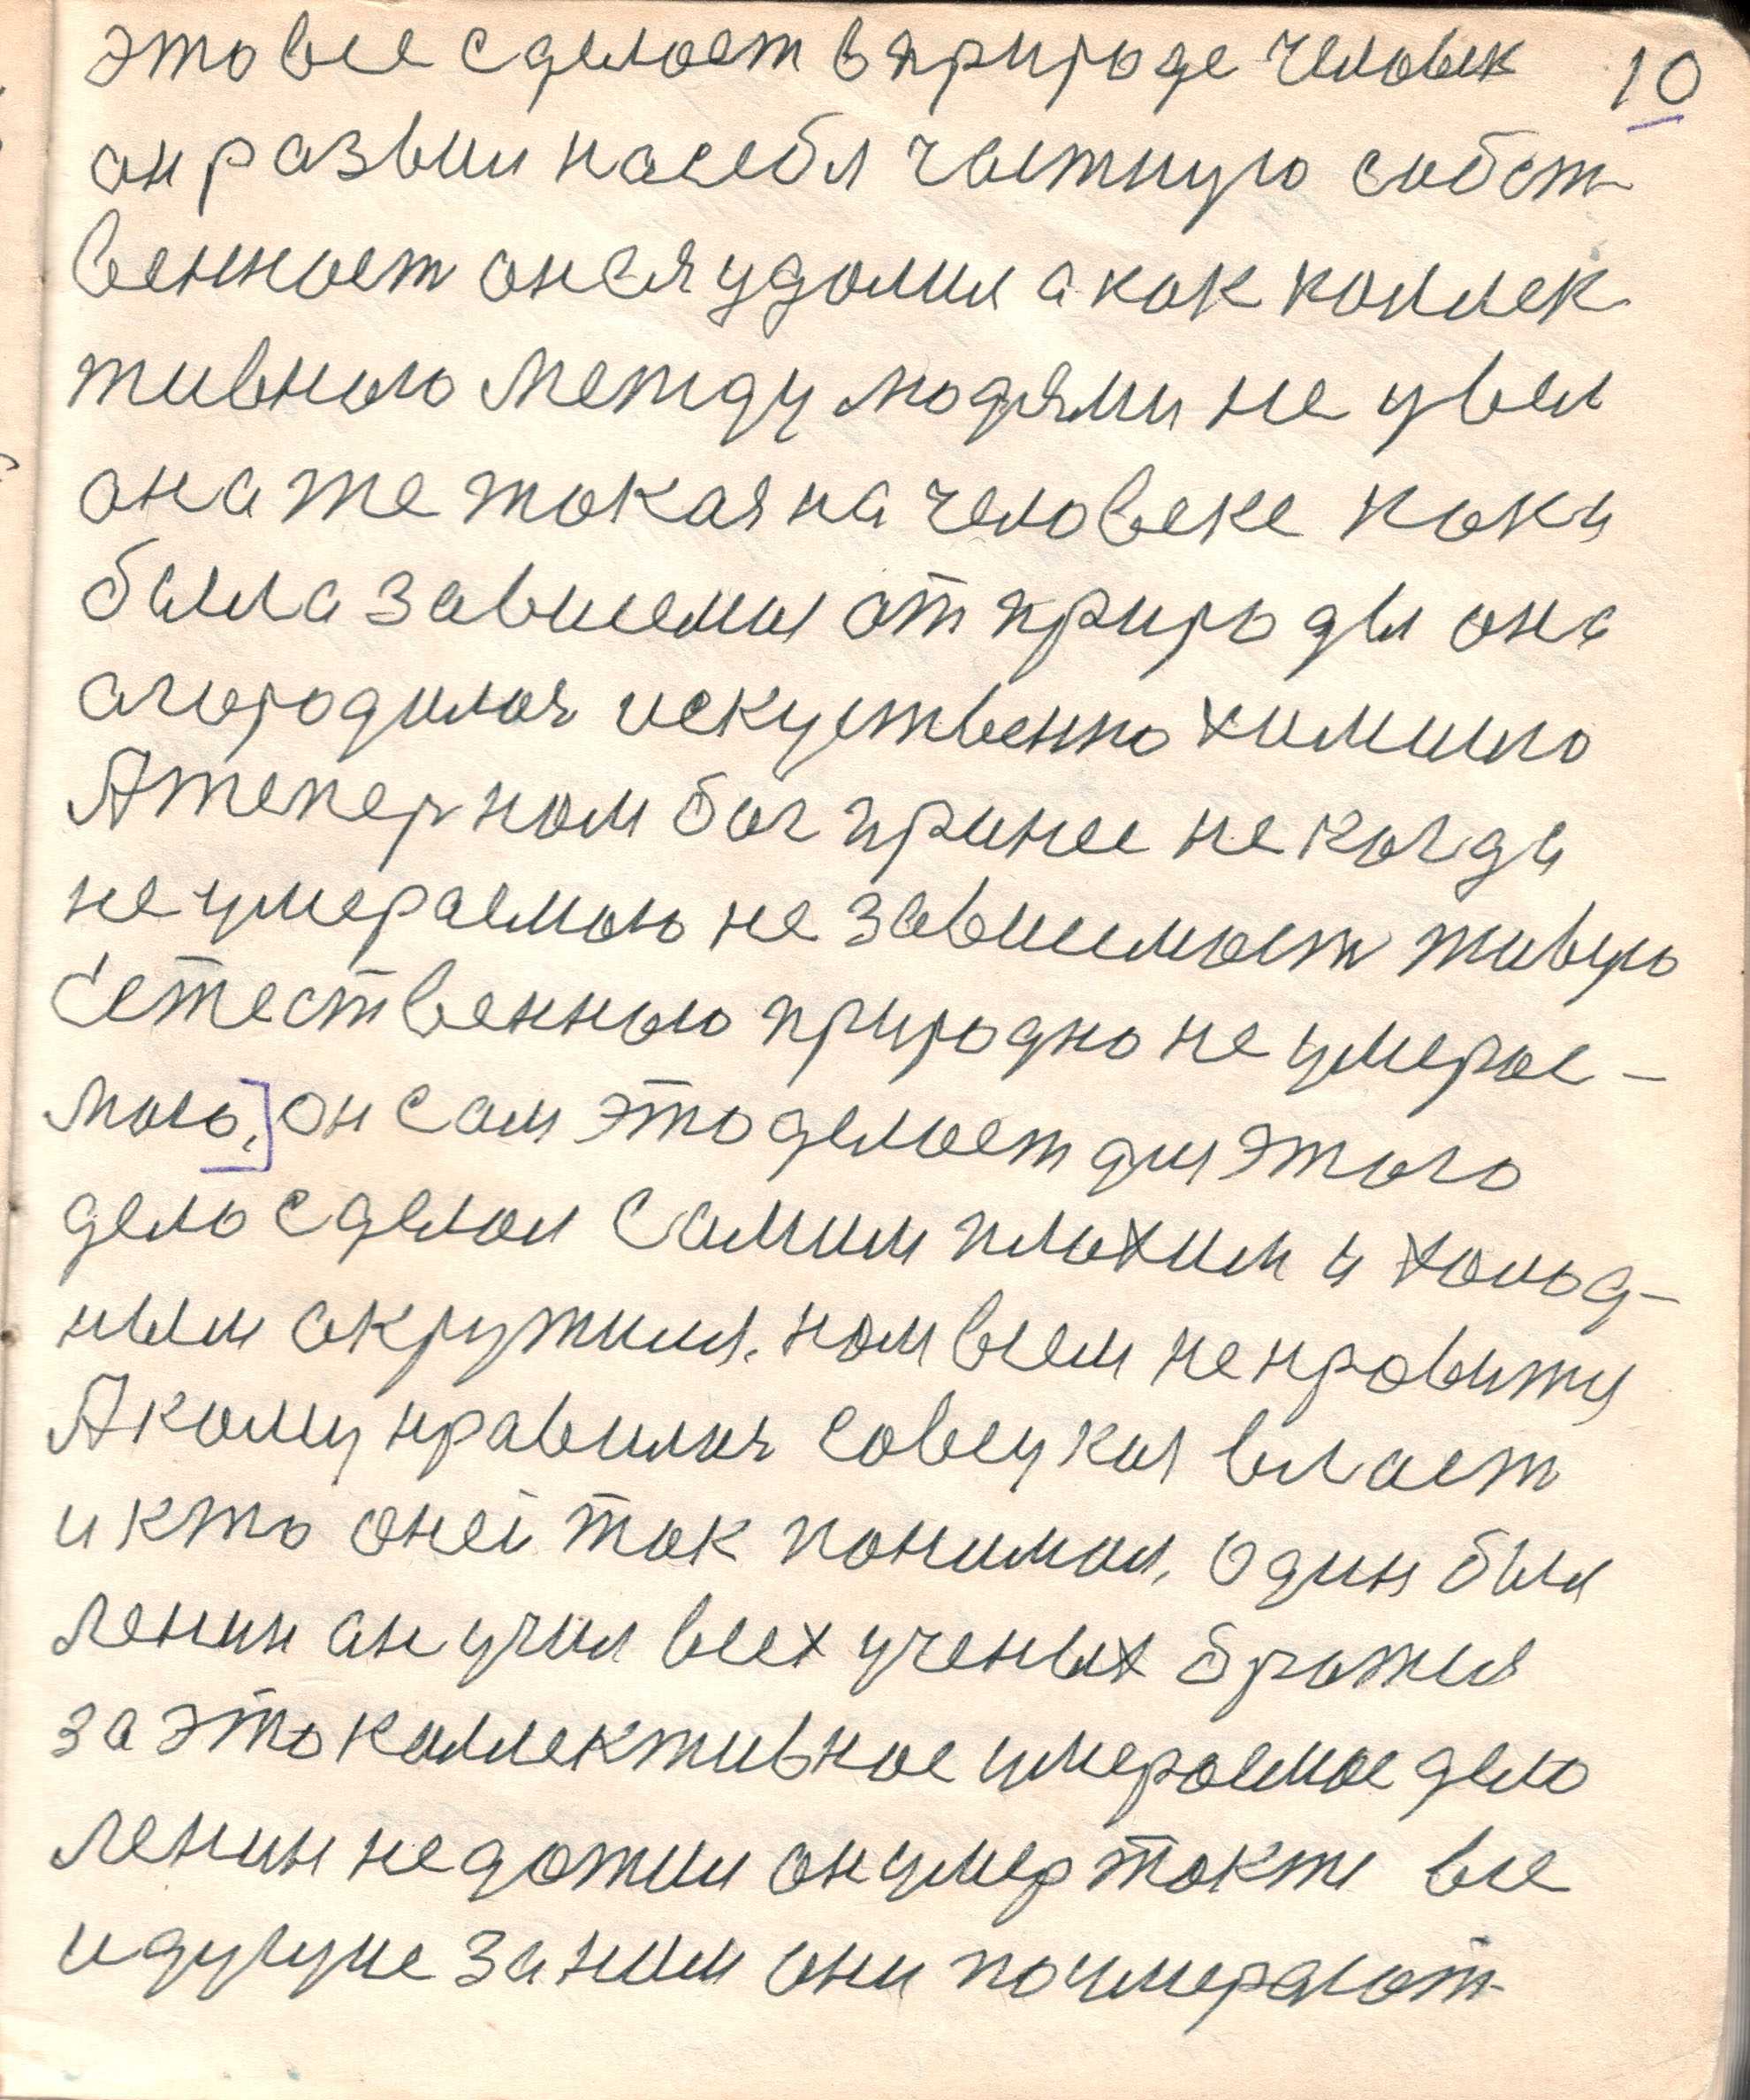 это все сделает в природе человек 10
он развил насебя частную собст
венност онея удалил а как коллек
тивною между людями не увел
она же такая на человеке как и
была зависемая от природы она
агородилас искуственно химиию
А теперь нам бог принес не когда
не умераемою не зависимост живую
Естественною природно не умерае-
мою. он сам это делает для этого
дело сделал самим плохим и холод-
ным окружился. нам всем не нравитя
А кому нравилас Совецкая власт
и кто оней так понимал. один был
Ленин он учил всех ученых бражся
за это коллективное умераемое дело
Ленин не дожил он умер так же все
идущие за ним они поумерают